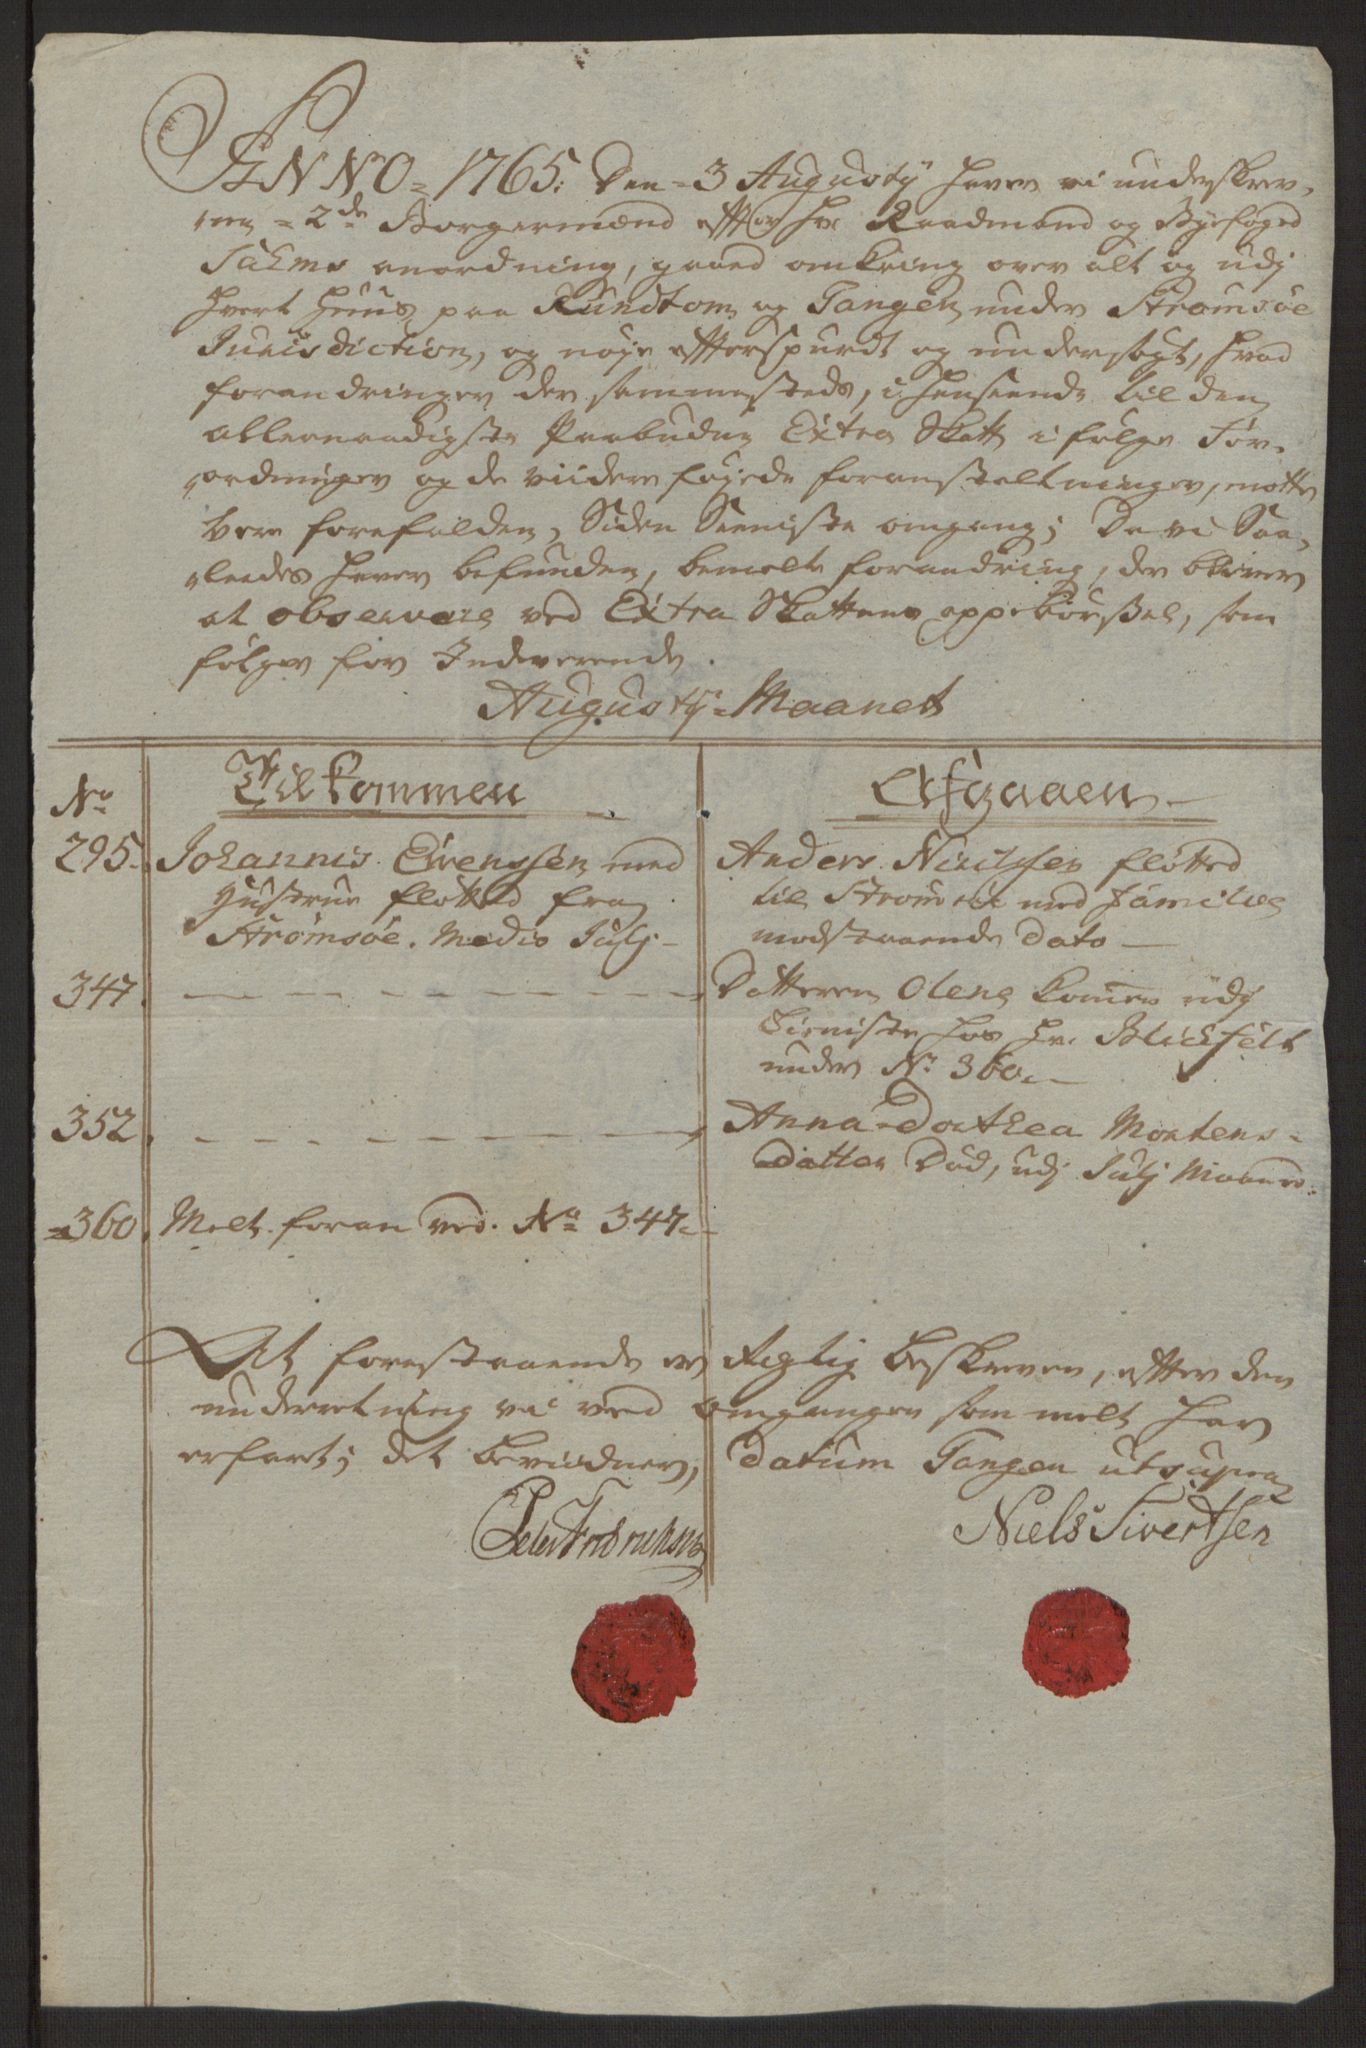 ANNO = 1765. Den = 3 Augusty haver vi underskrev-
ne = 2de Borgermænd efter Hr. Raadmand og Byefoged
Sahms anordning, gaaed omkring over alt og udj
hvert huus paa Rundtom og Tangen under Strømsøe
Jurisdiction, og nøye efterspurdt og undersøgt, hvad
forandringer der sammesteds, i henseende til den
allernaadigste Paabudne Extra Skatt i følge For-
ordninger og de viidere føyede foranstaltninger, motte
være forefalden, Siden Seeniste omgang; Da vi Saa-
leedes haver befunden, bemelte forandring, der bliver
at observere ved Extra Skattens oppebørsel, som
følger for Indeverende
Augusty Maanet
No Tilkommen Afgaaen
295. Johannis Evensen med Anders Nielsen fløtted
Hustrue fløtted fra til Strømsøe med Familie
Strømsøe. Medio Julj modstaaende Dato
347. Datteren Olene kommen udj
Tieniste hos Hr. Blichfelt
under No 360.
352. Anna Dorthea Mortens-
datter Død, udj Julj Maaned.
360. Melt foran ved No 347.
At forestaaende er Rigtig beskreven, efter den
underretning vi ved omgangen som melt har
erfaret; det bevidner, Datum Tangen ut supra
Peder Fredrichsen Niels Sivertsen